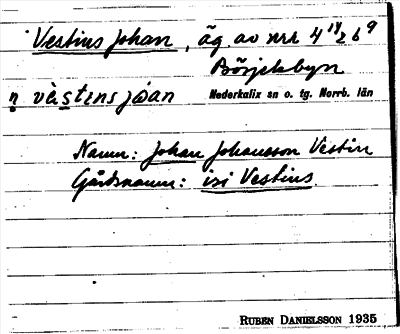 Vestius Johan, äg. av nr 4 14/2 b 9
Börjelsbyn
n vàstɩns jóan Nederkalix sn o. tg. Norrb. län
Namn: Johan Johansson Vestin
Gårdsnamn: isi Vestius.
RUBEN DANIELSSON 1935